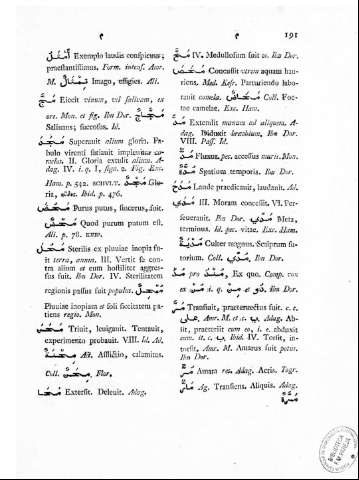 م م 191
أَمْثَلُ Exemplo laudis conspicuus;
praestantissimus. Form. intens. Amr.
M. تِمْثَالٌ Imago, effigies. Ali.
مَجَّ Eiecit vinum, vel salivam, ex
ore. Mon. et fig. Ibn Dor. مَجَّاجٌ
Salivans; succosus. Id.
مَجَدَ Superauit alium gloria. Pa-
bulo virenti satiauit implevitue ca-
melos. II. Gloria extulit alium. A-
dag. IV. i. q. I, sign. 2. Fig. Exc.
Ham. p. 592. SCHVLT. مَجْدٌ Glo-
ria, Ibid. p. 476.
مَحْضٌ Purus putus, sincerus, fuit.
مَحْضٌ Quod purum putum est.
Ali. p. 78. XXIII.
مَحَلَ Sterilis ex pluuiae inopia fu-
it terra, annus. III. Vertit se con-
tra alium et eum hostiliter aggres-
sus fuit. Ibn Dor. IV. Sterilitatem
regionis passus fuit populus. مُمْحِلٌ
Pluuiae inopiam et soli siccitatem pa-
tiens regio. Mon.
مَحَنَ Triuit, leuigauit. Tentauit,
experimento probauit. VIII. Id. Ad.
مِحْنَةٌ Afflictio, calamitas.
Coll. مِحَنٌ Flor.
مَحَا Extersit. Deleuit. Adag.
مَخَّ IV. Medullosum fuit os. Ibn Dor.
مَخَضَ Concussit utrem aquam hau-
riens. Med. Kesr. Parturiendo labo-
rauit camela. مَخَاضٌ Coll. Foe-
tae camelae. Exc. Ham.
مَدَّ Extendit manum ad aliquem. A-
dag. Diduxit brachium, Ibn Dor.
VIII. Pass. Id.
مَدٌّ Fluxus, pec. accessus maris. Mon.
مُدَّةٌ Spatium temporis. Ibn Dor.
مَدَحَ Laude praedicauit, laudauit. Ad.
مَدَى III. Moram concessit. VI. Per-
seuerauit. Ibn Dor. مَدًى Meta,
terminus. Id. pec. vitae. Exc. Ham.
مُدْيَةٌ Culter magnus. Scriptum su-
torium. Coll. مُدًى, Ibn Dor.
مُذْ pro مُنْذُ, Ex quo. Comp. con
ex مِنْ i. q. مِنْ et ذُو, Ibn Dor.
مَرَّ Transiuit, praeteruectus fuit. c. c.
عَلَى, Amr. M. et c. ب, Adag. Ab-
iit, praeteriit cum eo, i. e. abduxit
eum. it. c. ب, Ibid. IV. Torsit, in-
torsit, Amr. M. Amarus fuit potus.
Ibn Dor.
مُرٌّ Amara res. Adag. Acris. Togr.
مَارٌّ Ag. Transiens. Aliquis. Adag.
مَرَّةٌ